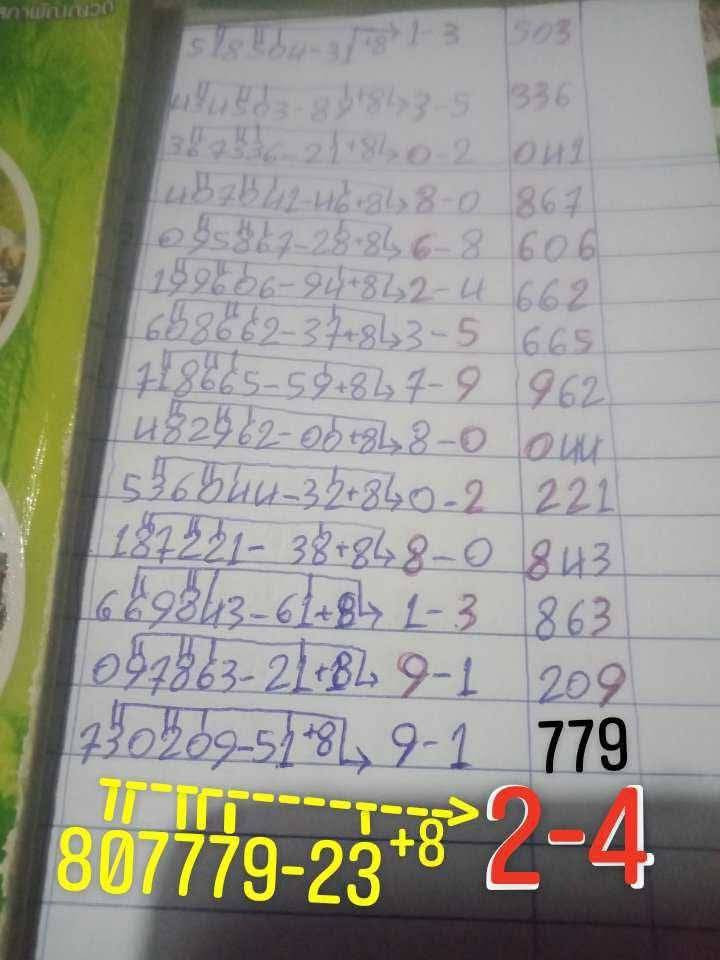 518504-31+8 1-3 503
434503-89+8 3-5 336
367336-21+8 0-2 041
407041-46+8 8-0 867
095867-28+8 6-8 606
199606-94+8 2-4 662
608662-37+8 3-5 665
718665-59+8 7-9 962
482962-00+8 8-0 044
536044-32+8 0-2 221
187221-38+8 8-0 843
669843-61+8 1-3 863
097863-21+8 9-1 209
730209-51+8 9-1 779
807779-23+8 2-4